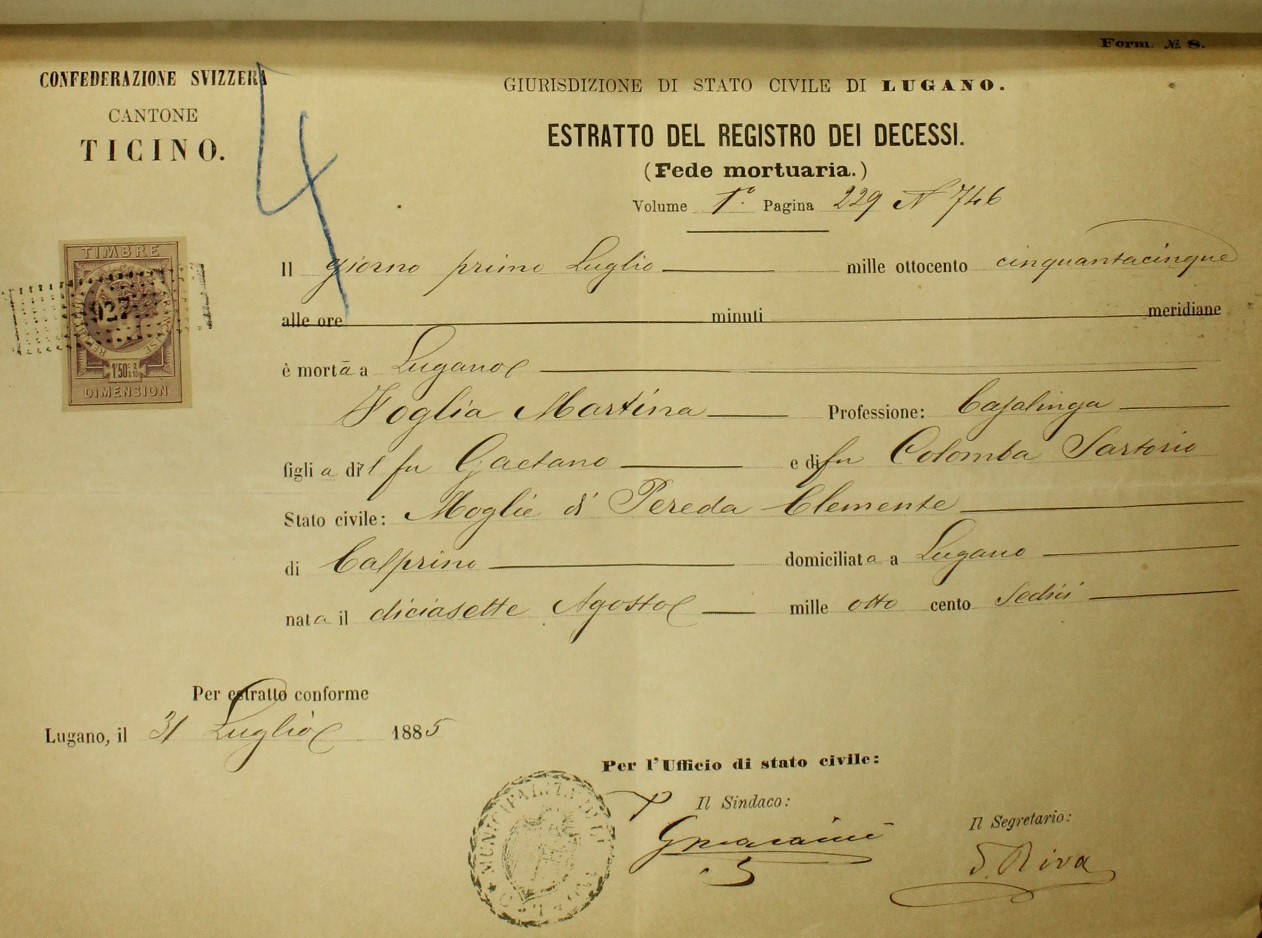 Form. № 8.
CONFEDERAZIONE SVIZZERA
CANTONE
TICINO.
4
GIURISDIZIONE DI STATO CIVILE DI LUGANO.
ESTRATTO DEL REGISTRO DEI DECESSI.
(Fede mortuaria.)
Volume 1º. Pagina 229 Nº 746
TIMBRE
927
1'50
DIMENSION
Il giorno primo Luglio mille ottocento cinquantacinque
alle ore minuti meridiane
è morta a Lugano
Foglia Martina Professione: Casalinga
figlia di fu Gaetano e di fu Colomba Sartorio
Stato civile: Moglie di Pereda Clemente
di Calprino domiciliata a Lugano
nata il diciasette Agosto mille otto cento Sedici
Per estratto conforme
Lugano, il 31 Luglio 1885
Per l'Ufficio di stato civile:
Il Sindaco:
Il Segretario:
Riva
MUNICIPALITÀ DI LUGANO